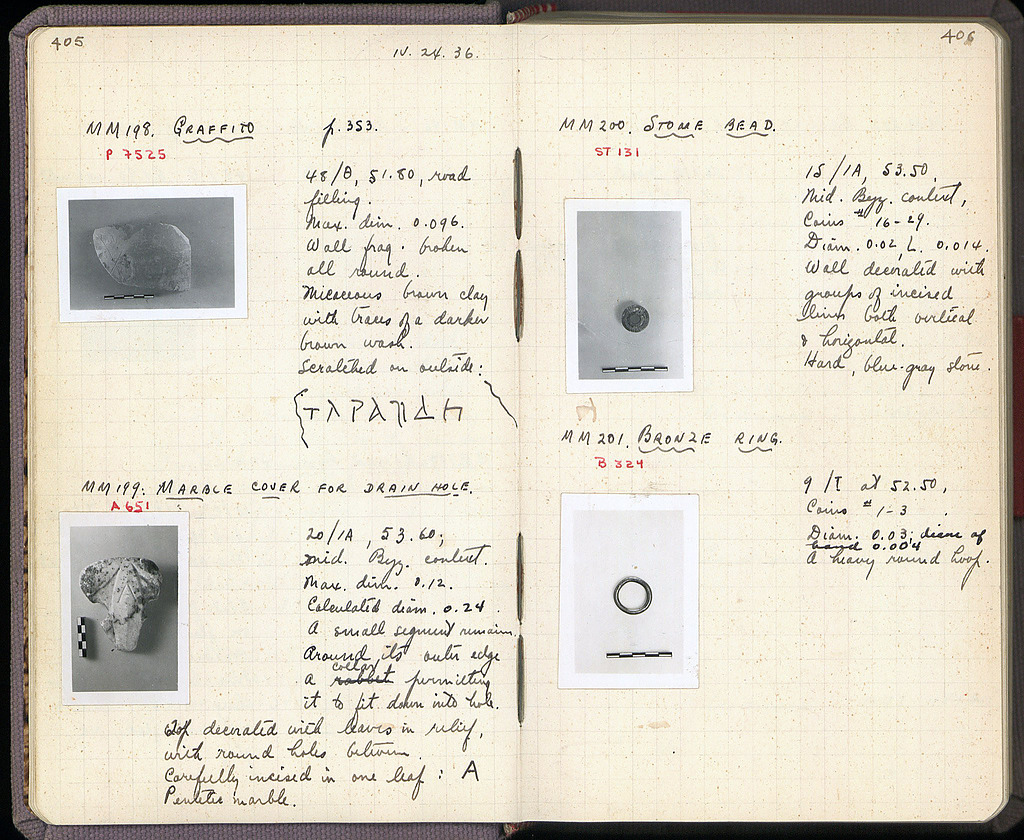 405
IV. 24. 36.
MM198. GRAFFITO p. 353.
P 7525
48/Θ, 51.80, road
filling.
Max. dim. 0.096.
Wall frag. broken
all round.
Micaceous brown clay
with traces of a darker
brown wash.
Scratched on outside:
MM199. MARBLE COVER FOR DRAIN HOLE.
A 651
20/IA, 53.60;
mid. Byz. context.
Max. dim. 0.12.
Calculated diam. 0.24.
A small segment remains.
Around its outer edge
a collar rabbet permitting
it to fit down into hole.
Top decorated with leaves in relief,
with round holes between.
Carefully incised in one leaf: A
Pentelic marble.
406
MM200. STONE BEAD.
ST 131
15/IA, 53.50,
Mid. Byz. context,
Coins # 16-29.
Diam. 0.02, L. 0.014.
Wall decorated with
groups of incised
lines both vertical
& horizontal.
Hard, blue-gray stone.
MM201. BRONZE RING.
B 324
9/ at 52.50,
Coins # 1-3.
Diam. 0.03; diam of
band 0.004
A heavy round hoop.